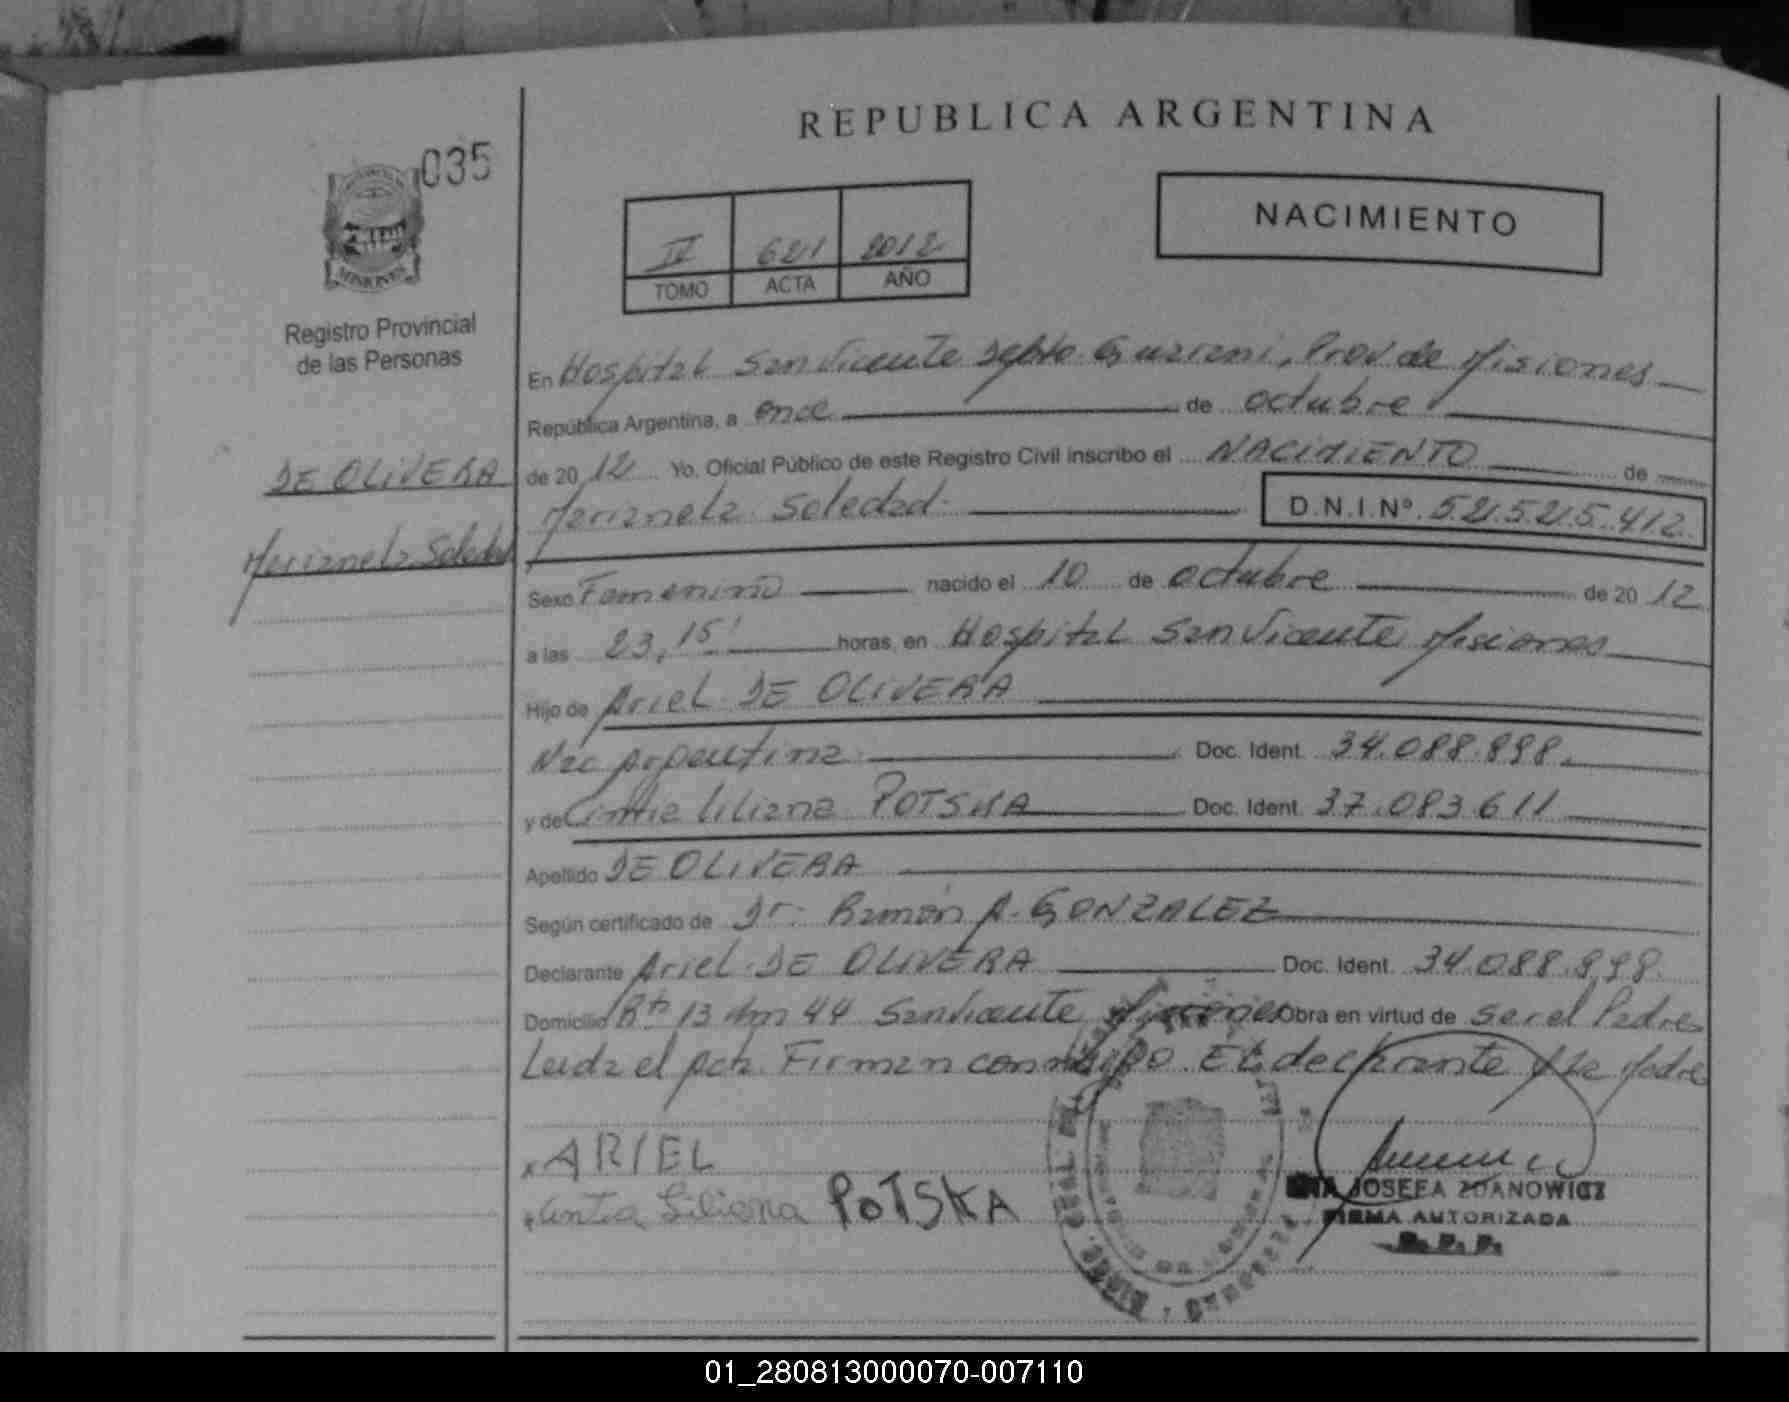 REPUBLICA ARGENTINA
035
NACIMIENTO
IV 621 2012
TOMO ACTA AÑO
MISIONES
Registro Provincial
de las Personas
En Hospital San Vicente Depto Guarani, Prov de Misiones
República Argentina, a once de octubre
DE OLIVERA
de 20 12 Yo. Oficial Público de este Registro Civil inscribo el NACIMIENTO de
Marianela Soledad D.N.I.Nº 52.525.412
Marianela Soledad
Sexo Femenino nacido el 10 de octubre de 20 12
a las 23,15' horas, en Hospital San Vicente Misiones
Hijo de Ariel DE OLIVERA
Nac Argentina Doc. Ident. 34.088.898
y de Cintia Liliana POTSKA Doc. Ident. 37.083.611
Apellido DE OLIVERA
Según certificado de Dr. Ramón A. GONZALEZ
Declarante Ariel DE OLIVERA Doc. Ident. 34.088.898
Domicilio Rta 13 Km 44 San Vicente Misiones Obra en virtud de ser el Padre
Leida el Acta Firman conmigo El declarante y la Madre
x ARIEL
x Cintia Liliana POTSKA
JOSEFA ZDANOWICZ
FIRMA AUTORIZADA
R. P. P.
01_280813000070-007110